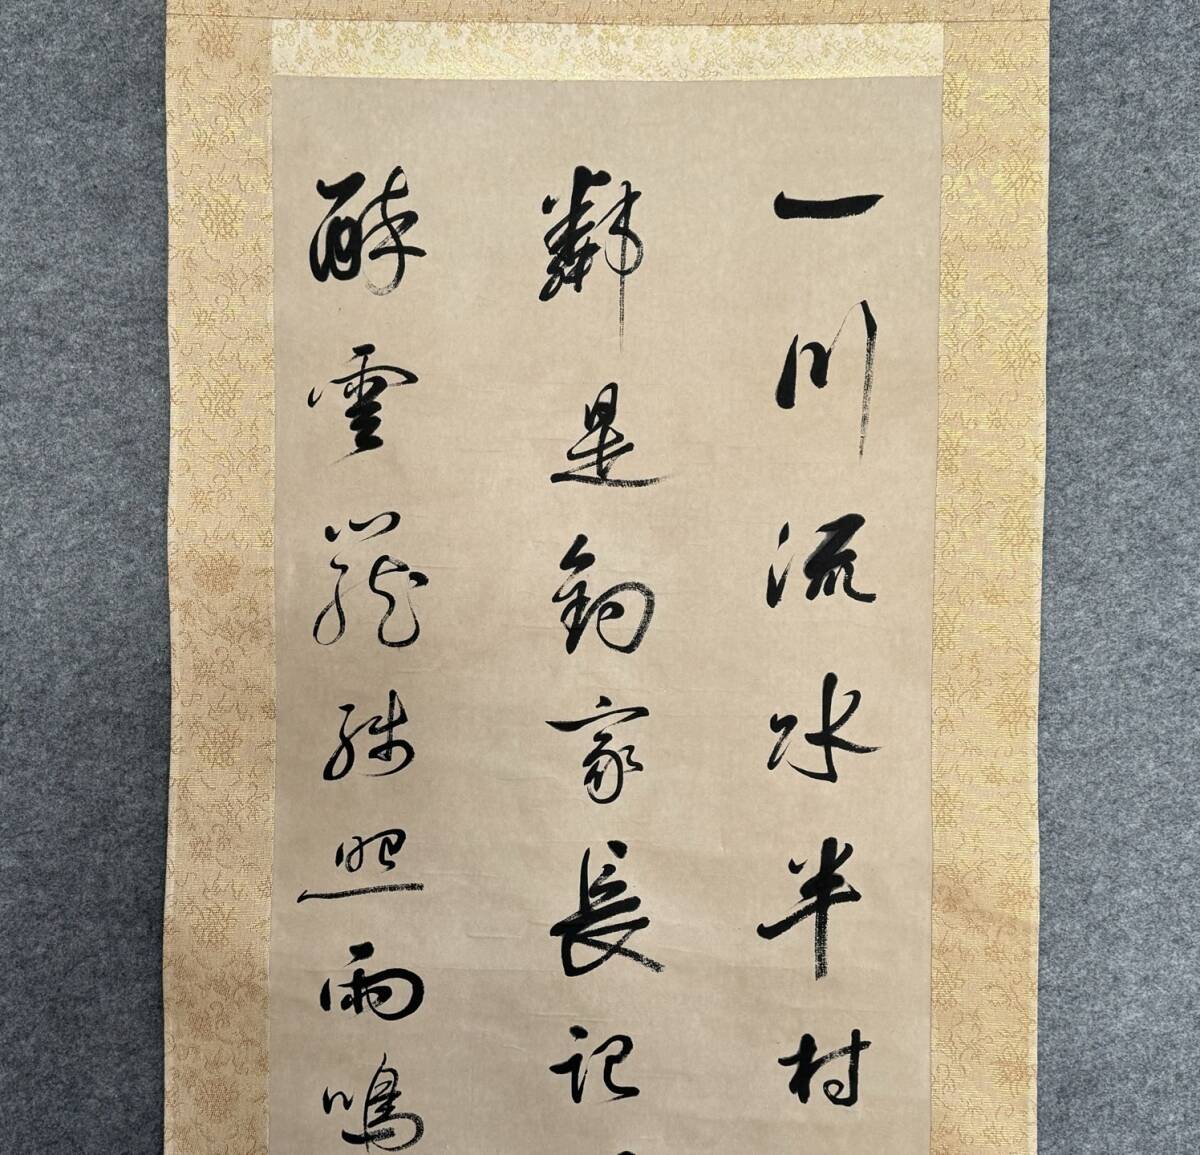 一川流水半村
鄰是釣家長記
醉雲籠殘照雨鳴